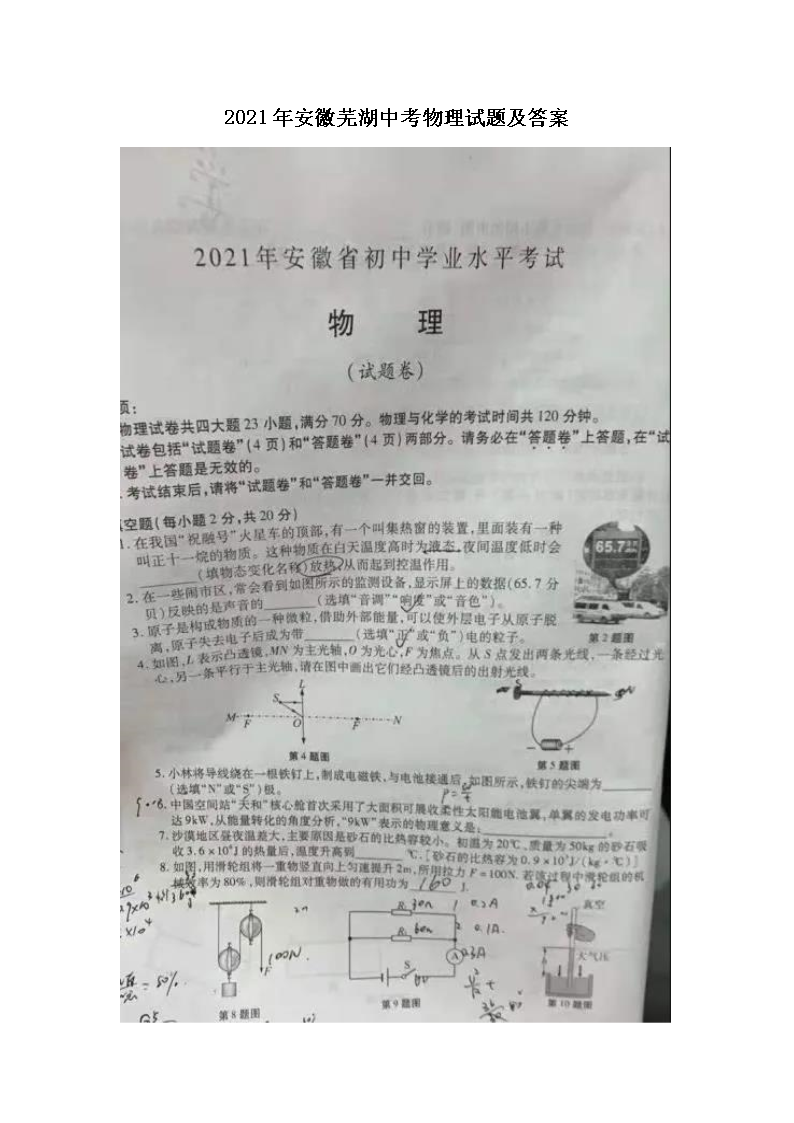 2021年安徽芜湖中考物理试题及答案
2021年安徽省初中学业水平考试
物 理
(试题卷)
项:
物理试卷共四大题23小题,满分70分。物理与化学的考试时间共120分钟。
试卷包括“试题卷”(4页)和“答题卷”(4页)两部分。请务必在“答题卷”上答题,在“试
卷”上答题是无效的。
考试结束后,请将“试题卷”和“答题卷”一并交回。
空题(每小题2分,共20分)
1.在我国“祝融号”火星车的顶部,有一个叫集热窗的装置,里面装有一种
叫正十一烷的物质。这种物质在白天温度高时为液态,夜间温度低时会
(填物态变化名称)放热,从而起到控温作用。
2.在一些闹市区,常会看到如图所示的监测设备,显示屏上的数据(65.7分
贝)反映的是声音的______(选填“音调”“响度”或“音色”)。
65.7
第2题图
3.原子是构成物质的一种微粒,借助外部能量,可以使外层电子从原子脱
离,原子失去电子后成为带______(选填“正”或“负”)电的粒子。
4.如图,L表示凸透镜,MN为主光轴,O为光心,F为焦点。从S点发出两条光线,一条经过光
心,另一条平行于主光轴,请在图中画出它们经凸透镜后的出射光线。
L
S
S N
M F O F N
- +
第4题图 第5题图
5.小林将导线绕在一根铁钉上,制成电磁铁,与电池接通后,如图所示,铁钉的尖端为______
(选填“N”或“S”)极。
6.中国空间站“天和”核心舱首次采用了大面积可展收柔性太阳能电池翼,单翼的发电功率可
达9kW,从能量转化的角度分析,“9kW”表示的物理意义是:______。
7.沙漠地区昼夜温差大,主要原因是砂石的比热容较小。初温为20℃、质量为50kg的砂石吸
收3.6×10⁵J的热量后,温度升高到______℃.[砂石的比热容为0.9×10³J/(kg·℃)]
8.如图,用滑轮组将一重物竖直向上匀速提升2m,所用拉力F=100N.若该过程中滑轮组的机
械效率为80%,则滑轮组对重物做的有用功为 160 J.
R₁ 30Ω 0.2A
R₂ 60Ω 0.1A
A 0.3A
S
100N
F
真空
大气压
h
= 80%
第8题图 第9题图 第10题图